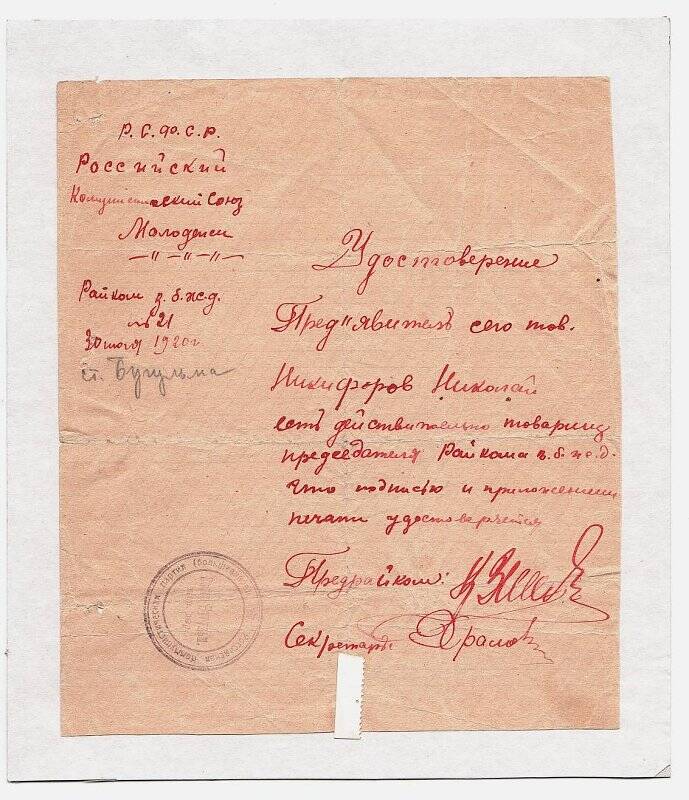 Р.С.Ф.С.Р.
Российский
Коммунистический Союз
Молодежи
—"—"—"—
Райком в.б.ж.д.
№ 21
30 июля 1920 г.
ст. Бугульма
Удостоверение
Пред"явитель сего тов.
Никифоров Николай
есть действительно товарищ
председателя Райкома в.б.ж.д.
что подписью и приложением
печати удостоверяется
Предрайкома:
Секретарь
Российская Коммунистическая партия (большевик